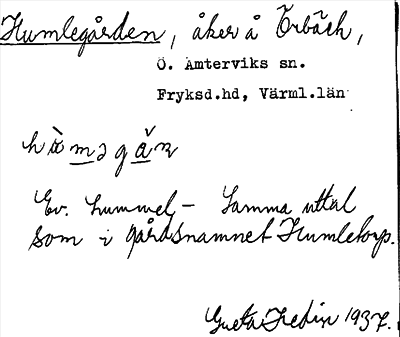 Humlegården, åker å Örbäck,
Ö. Ämterviks sn.
Fryksd.hd, Värml.län
Ev. hummel, – Samma uttal
som i gårdsnamnet Humletorp.
Greta Hedin 1937.